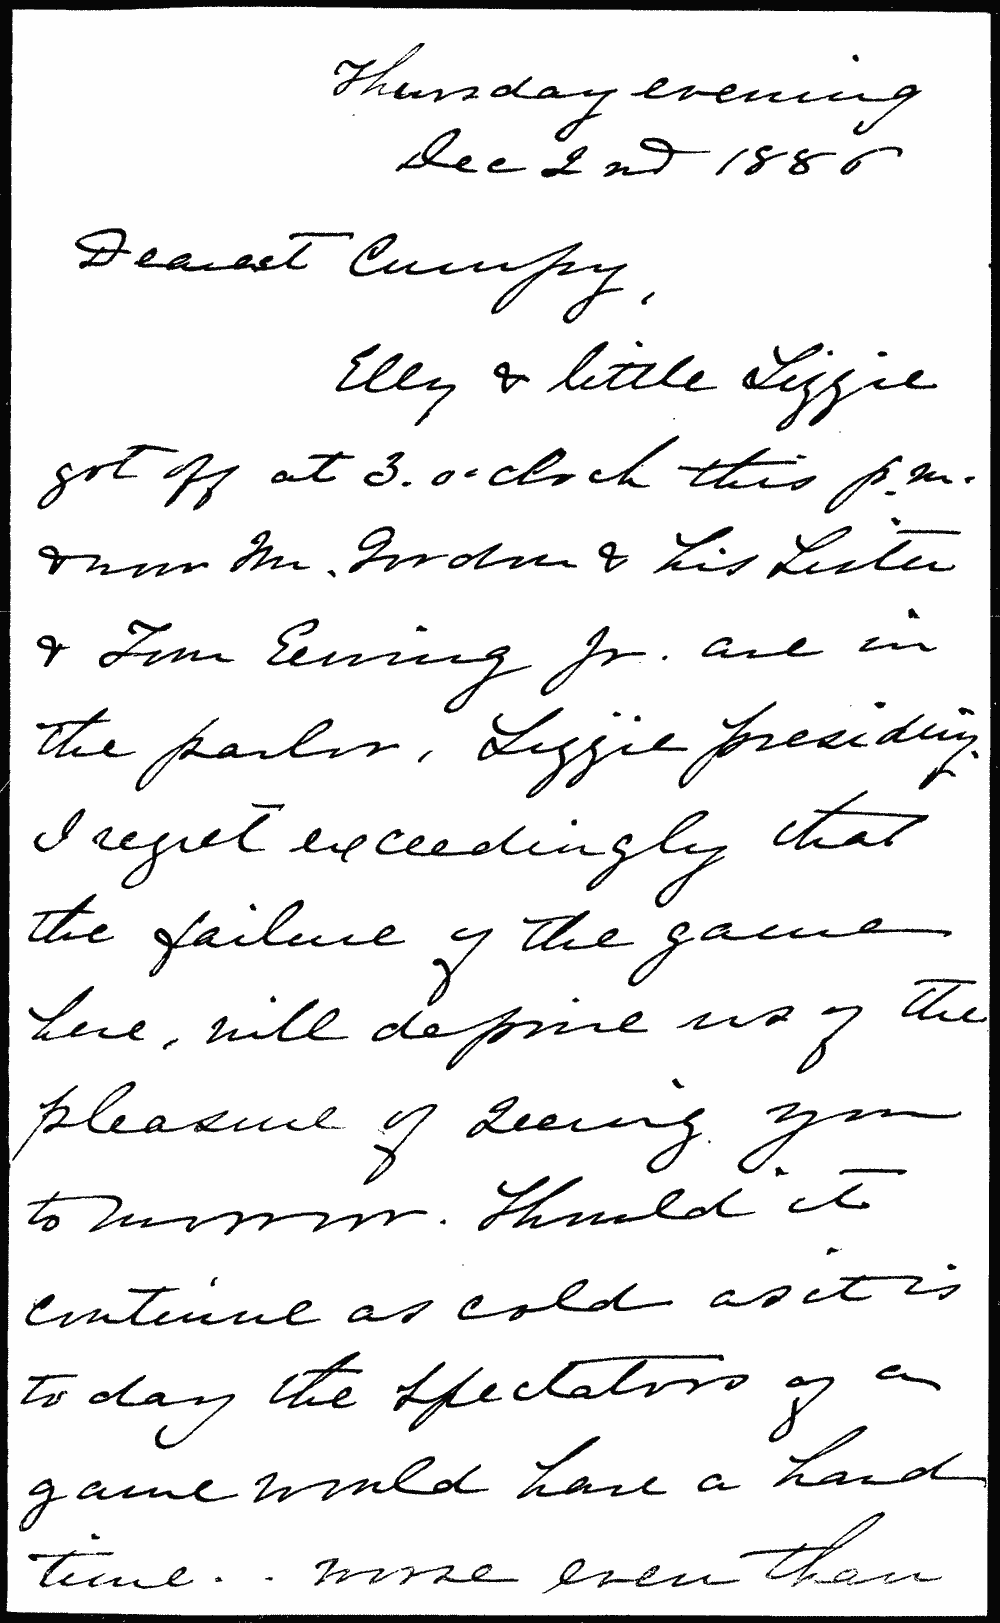 Thursday evening
Dec 2nd 1886
Dearest Cumpy,
Elly & little Lizzie
got off at 3. o'clock this p.m.
& now Mr. Gordon & his sister
& Tom Ewing Jr. are in
the parlor, Lizzie presiding.
I regret exceedingly that
the failure of the game
here, will deprive us of the
pleasure of seeing you
tomorrow. Should it
continue as cold as it is
to day the spectators of a
game would have a hard
time.. worse even than